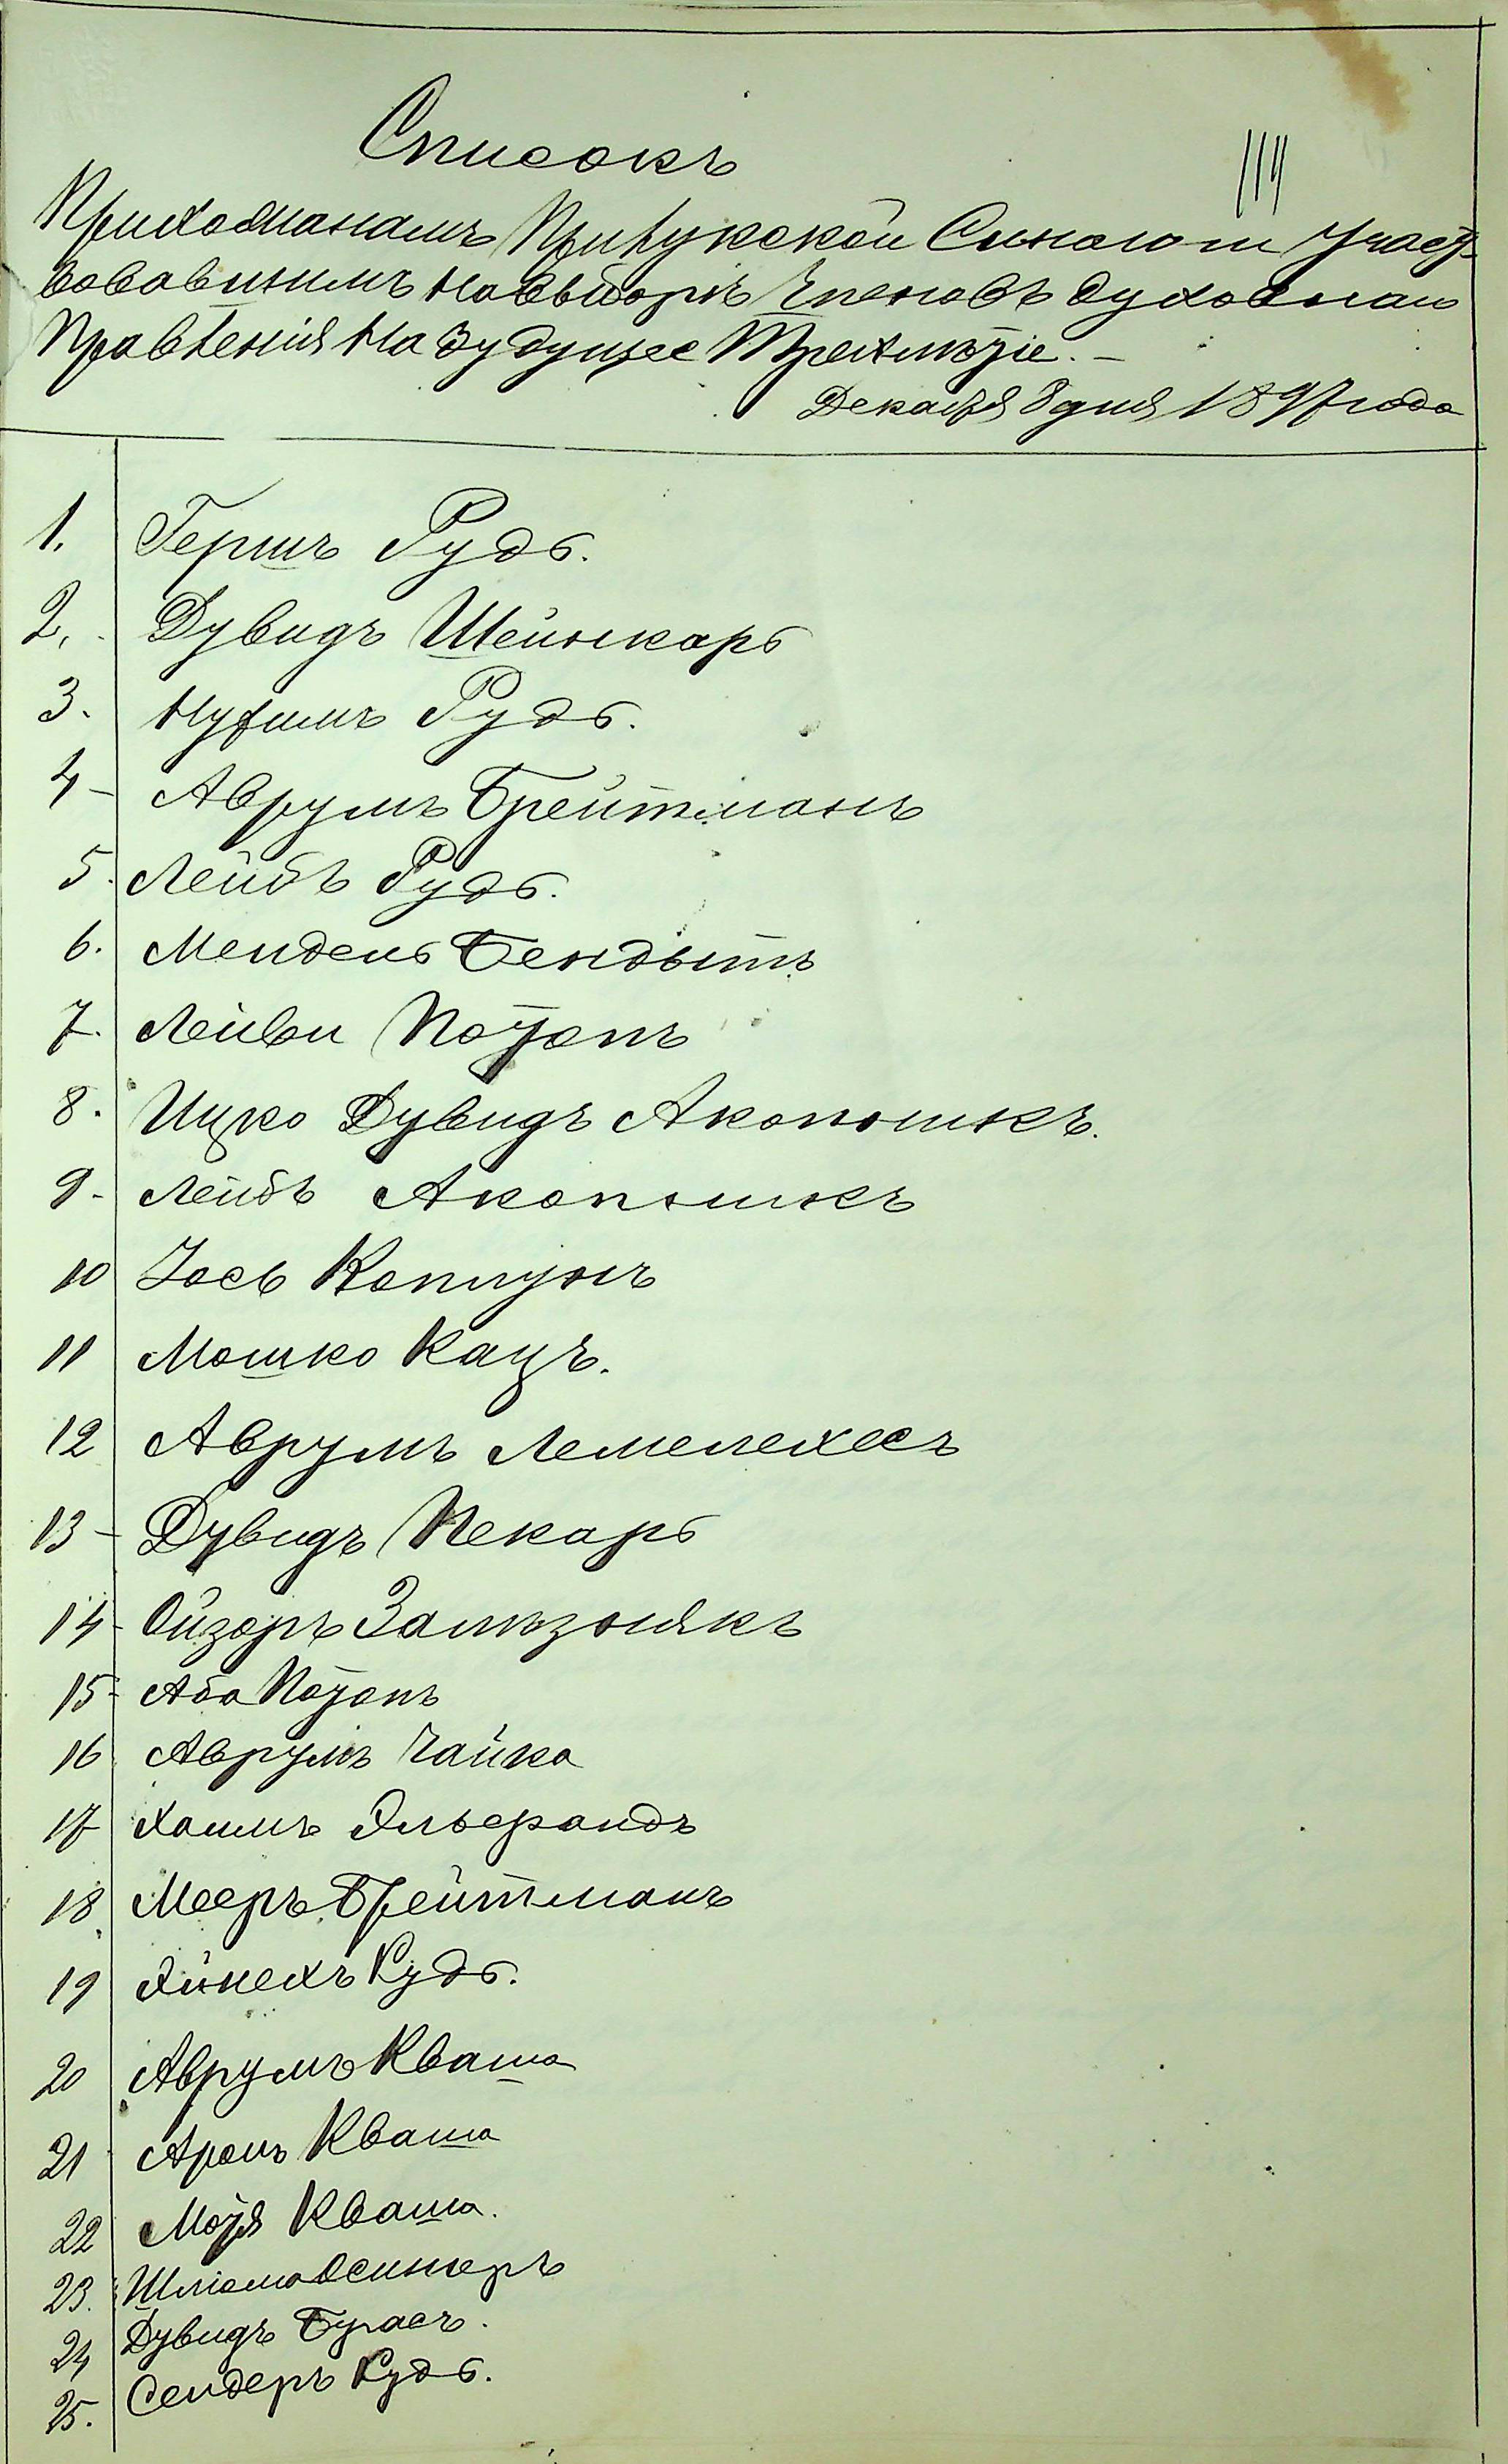 Списокъ
114
Прихожанамъ Прилукской Синагоги участ-
вовавшимъ на выборѣ Членовъ духовнаго
Правленія на будущее Трехлѣтіе. —
Декабря 8 дня 1897 года
1. Гершъ Рудь.
2. Дувидъ Шейнкарь
3. Нухимъ Рудь.
4 - Аврумъ Брейтманъ
5. Лейбъ Рудь.
6. Мендель Бендытъ
7. Лейви Потапъ
8. Ицко Дувидъ Акопникъ.
9 - Лейбъ
10 Іось Каплунъ
11 Мошко Кацъ.
12 Аврумъ Лемелехесъ
13 - Дувидъ Пекарь
14 - Ойзоръ Залѣзнякъ
15 - Аба Потапъ
16 Аврумъ Чайка
17 Хаимъ Эльферандъ
18 Мееръ Брейтманъ
19 Эйнехъ Рудь.
20 Аврумъ Кваша
21 Аронъ Кваша
22 Мотя Кваша.
23. Шліома Осингеръ
24 Дувидъ Бугаеъ.
25. Сендеръ Рудь.